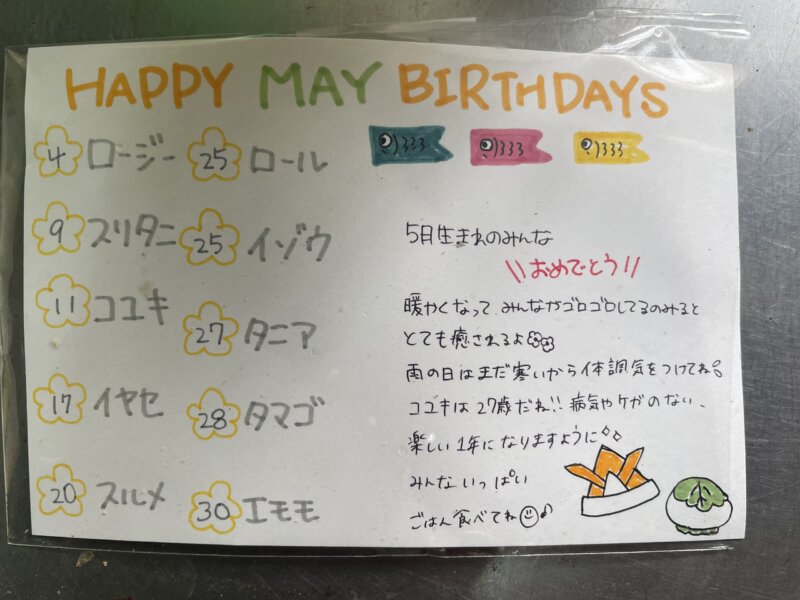 HAPPY MAY BIRTHDAYS
4 ロージー
9 スリタニ
11 コユキ
17 イヤセ
20 スルメ
25 ロール
25 イゾウ
27 タニア
28 タマゴ
30 エモモ
5月生まれのみんな
\\おめでとう//
暖かくなって、みんながゴロゴロしてるのみると
とても癒されるよ
雨の日はまだ寒いから体調気をつけてね
コユキは27歳だね!! 病気やケガのない、
楽しい1年になりますように
みんないっぱい
ごはん食べてね